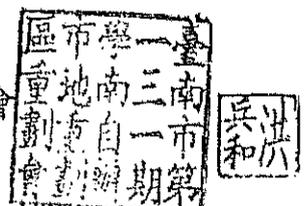 臺南市第
一三一期
學南自辦
市地重劃
區重劃會
洪
兵和